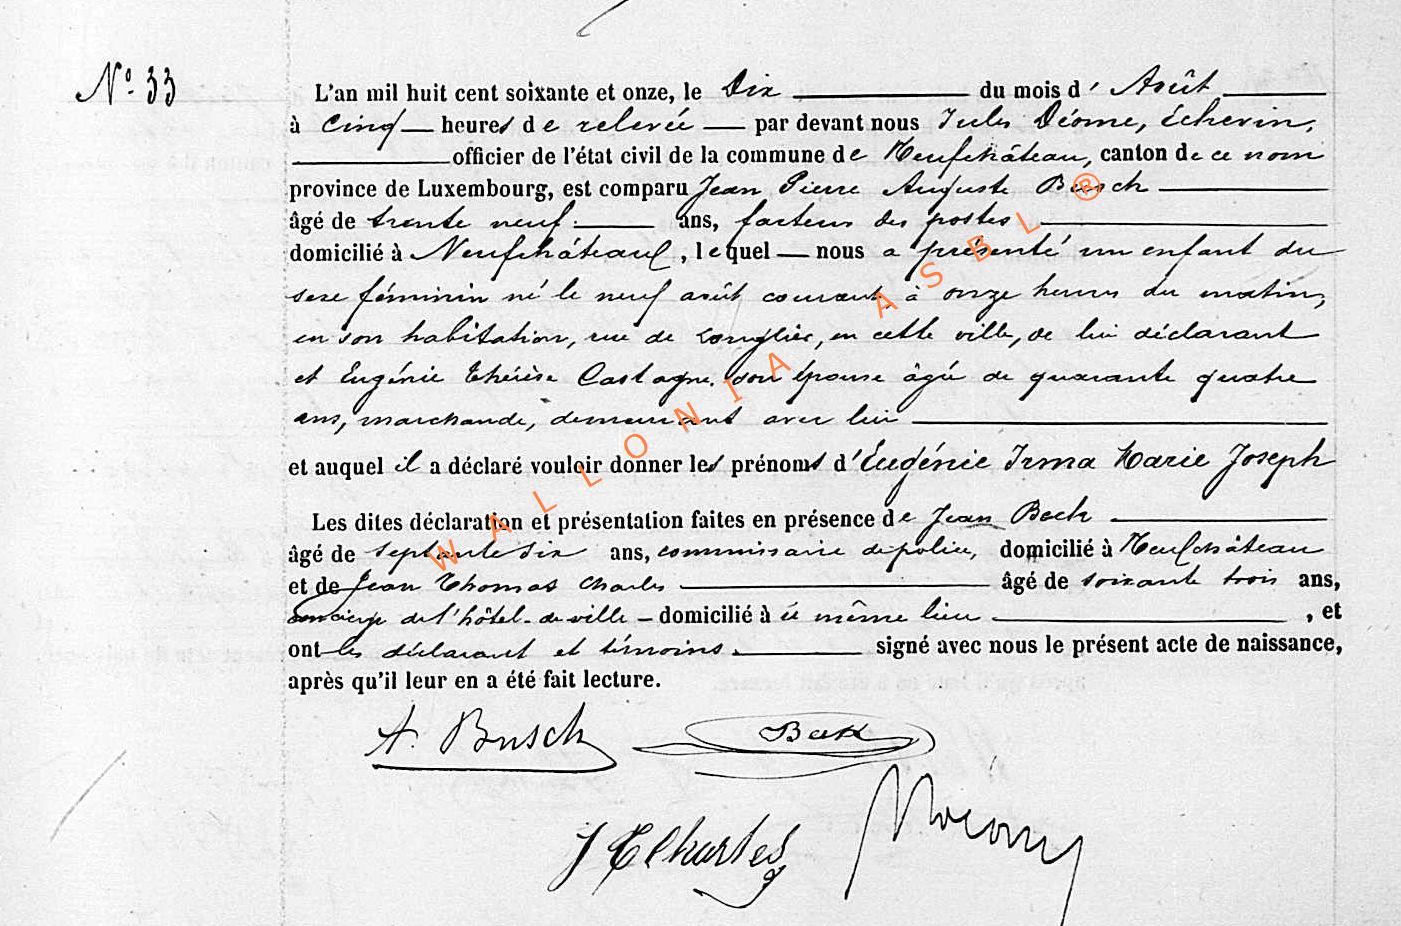 N° 33
L'an mil huit cent soixante et onze, le Dix du mois d' Août
à cinq heures de relevée par devant nous Jules Déome, Échevin,
officier de l'état civil de la commune de Neufchâteau, canton de ce nom
province de Luxembourg, est comparu Jean Pierre Auguste Busch
âgé de trente neuf ans, facteur des postes
domicilié à Neufchâteau, lequel nous a présenté un enfant du
sexe féminin né le neuf août courant, à onze heures du matin,
en son habitation, rue de Longlier, en cette ville, de lui déclarant
et Eugénie Thérèse Castagne, son épouse âgée de quarante quatre
ans, marchande, demeurant avec lui
et auquel il a déclaré vouloir donner les prénoms d'Eugénie Irma Marie Joseph
Les dites déclaration et présentation faites en présence de Jean Beck
âgé de septante six ans, commissaire de police, domicilié à Neufchâteau
et de Jean Thomas Charles âgé de soixante trois ans,
concierge de l'hôtel-de-ville – domicilié à ce même lieu, et
ont les déclarant et témoins signé avec nous le présent acte de naissance,
après qu'il leur en a été fait lecture.
A. Busch Beck
J T Charles
WALLONIA ASBL ®